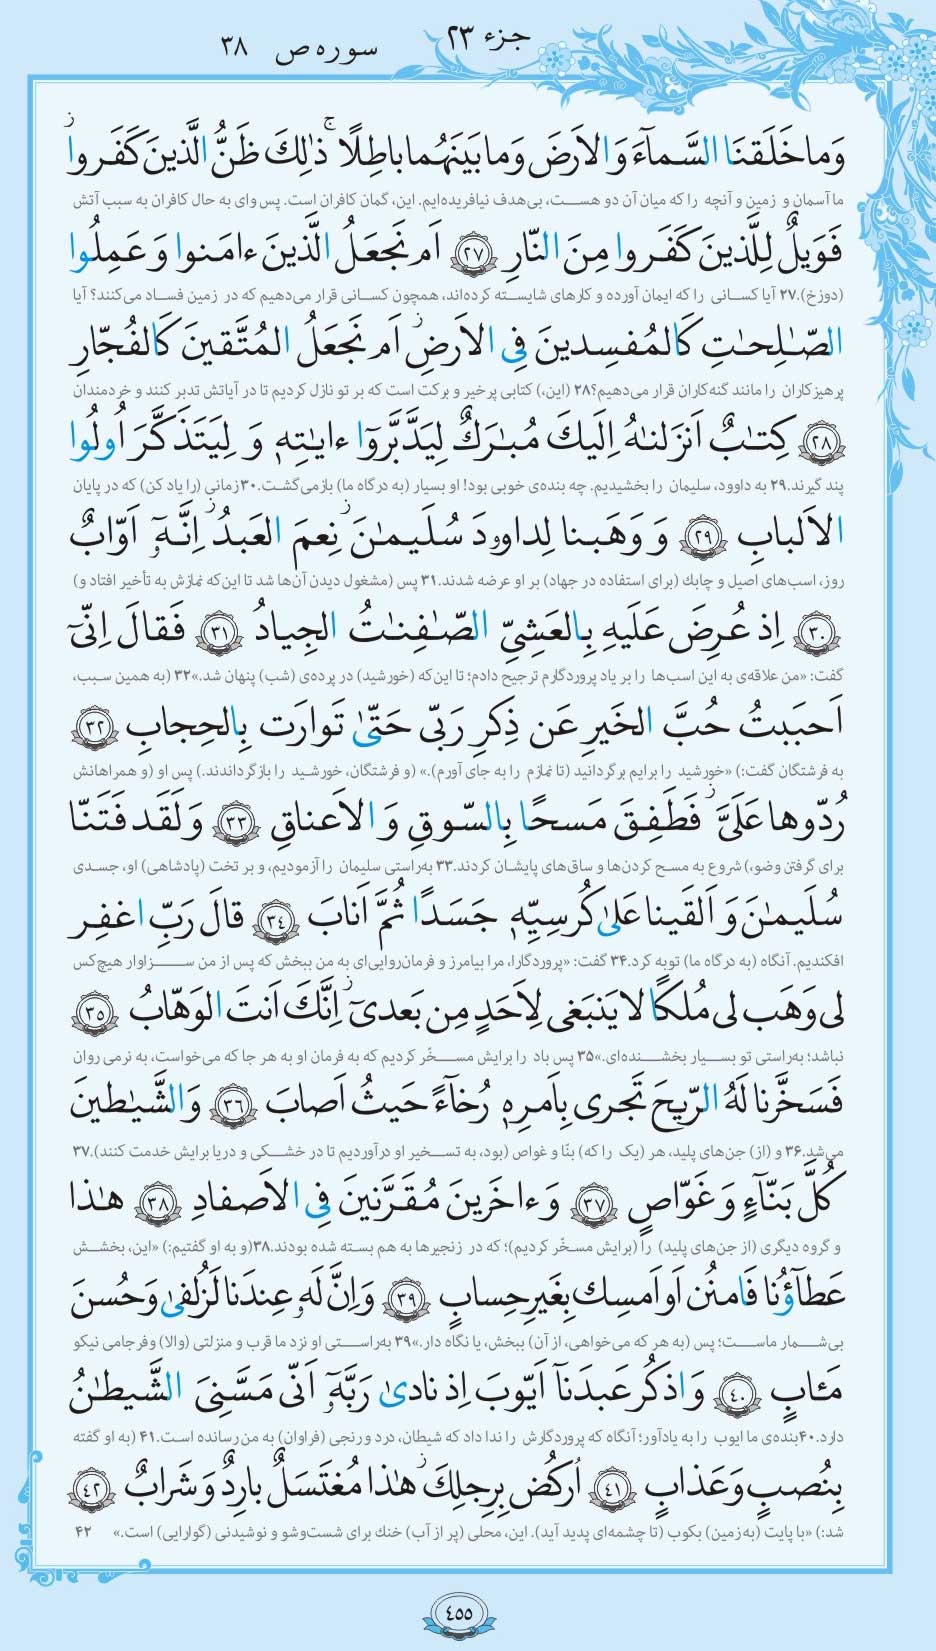 جزء ۲۳
سوره ص ۳۸
وَما خَلَقنَا السَّماءَ وَ الاَرضَ وَما بَينَهُما باطِلًا ۚ ذٰلِكَ ظَنُّ الَّذينَ كَفَروا ز
ما آسمان و زمین و آنچه را که میان آن دو هست، بی‌هدف نیافریده‌ایم. این، گمان کافران است. پس وای به حال کافران به سبب آتش
فَوَيلٌ لِلَّذينَ كَفَروا مِنَ النّارِ ۲۷ اَم نَجعَلُ الَّذينَ ءامَنوا وَ عَمِلُوا
(دوزخ). ۲۷ آیا کسانی را که ایمان آورده و کارهای شایسته کرده‌اند، همچون کسانی قرار می‌دهیم که در زمین فساد می‌کنند؟ آیا
الصّٰلِحٰتِ كَالمُفسِدينَ فِى الاَرضِ ز اَم نَجعَلُ المُتَّقينَ كَالفُجّارِ
پرهیزکاران را مانند گنه‌کاران قرار می‌دهیم؟ ۲۸ (این،) کتابی پرخیر و برکت است که بر تو نازل کردیم تا در آیاتش تدبر کنند و خردمندان
۲۸ كِتٰبٌ اَنزَلنٰهُ اِلَيكَ مُبٰرَكٌ لِيَدَّبَّروٓا ءايٰتِه۪ وَ لِيَتَذَكَّرَ اُولُوا
پند گیرند. ۲۹ به داوود، سلیمان را بخشیدیم. چه بنده‌ی خوبی بود! او بسیار (به درگاه ما) بازمی‌گشت. ۳۰ زمانی (را یاد کن) که در پایان
الاَلبابِ ۲۹ وَ وَهَبنا لِداوودَ سُلَيمٰنَ ز نِعمَ العَبدُ ز اِنَّهٗٓ اَوّابٌ
روز، اسب‌های اصیل و چابک (برای استفاده در جهاد) بر او عرضه شدند. ۳۱ پس (مشغول دیدن آن‌ها شد تا این‌که نمازش به تأخیر افتاد و)
۳۰ اِذ عُرِضَ عَلَيهِ بِالعَشِىِّ الصّٰفِنٰتُ الجِيادُ ۳۱ فَقالَ اِنّىٓ
گفت: «من علاقه‌ی به این اسب‌ها را بر یاد پروردگارم ترجیح دادم؛ تا این‌که (خورشید) در پرده‌ی (شب) پنهان شد.» ۳۲ (به همین سبب،
اَحبَبتُ حُبَّ الخَيرِ عَن ذِكرِ رَبّى حَتّىٰ تَوارَت بِالحِجابِ ۳۲
به فرشتگان گفت:) «خورشید را برایم برگردانید (تا نمازم را به جای آورم).» (و فرشتگان، خورشید را بازگرداندند.) پس او (و همراهانش
رُدّوها عَلَىَّ ز فَطَفِقَ مَسحًا بِالسّوقِ وَ الاَعناقِ ۳۳ وَ لَقَد فَتَنّا
برای گرفتن وضو،) شروع به مسح کردن‌ها و ساق‌های پایشان کردند. ۳۳ به‌راستی سلیمان را آزمودیم، و بر تخت (پادشاهی) او، جسدی
سُلَيمٰنَ وَ اَلقَينا عَلىٰ كُرسِيِّه۪ جَسَدًا ثُمَّ اَنابَ ۳۴ قالَ رَبِّ اغفِر
افکندیم. آنگاه (به درگاه ما) توبه کرد. ۳۴ گفت: «پروردگارا، مرا بیامرز و فرمان‌روایی‌ای به من ببخش که پس از من سزاوار هیچ‌کس
لى وَهَب لى مُلكًا لا يَنبَغى لِاَحَدٍ مِن بَعدىٓ ز اِنَّكَ اَنتَ الوَهّابُ ۳۵
نباشد؛ به‌راستی تو بسیار بخشنده‌ای.» ۳۵ پس باد را برایش مسخّر کردیم که به فرمان او به هر جا که می‌خواست، به نرمی روان
فَسَخَّرنا لَهُ الرّيحَ تَجرى بِاَمرِه۪ رُخآءً حَيثُ اَصابَ ۳۶ وَالشَّيٰطينَ
می‌شد. ۳۶ و (از) جن‌های پلید، هر (یک را که) بنّا و غواص (بود، به تسخیر او درآوردیم تا در خشکی و دریا برایش خدمت کنند). ۳۷
كُلَّ بَنّآءٍ وَ غَوّاصٍ ۳۷ وَ ءاخَرينَ مُقَرَّنينَ فِى الاَصفادِ ۳۸ هٰذا
و گروه دیگری (از جن‌های پلید) را (برایش مسخّر کردیم)؛ که در زنجیرها به هم بسته شده بودند. ۳۸ (و به او گفتیم:) «این، بخشش
عَطآؤُنا فَامنُن اَو اَمسِك بِغَيرِ حِسابٍ ۳۹ وَ اِنَّ لَهٗ عِندَنا لَزُلفىٰ وَ حُسنَ
بی‌شمار ماست؛ پس (به هر که می‌خواهی، از آن) ببخش، یا نگاه دار.» ۳۹ به‌راستی او نزد ما قرب و منزلتی (والا) و فرجامی نیکو
مَـٔابٍ ۴۰ وَ اذكُر عَبدَنآ اَيّوبَ اِذ نادىٰ رَبَّهٗٓ اَنّى مَسَّنِىَ الشَّيطٰنُ
دارد. ۴۰ بنده‌ی ما ایوب را به یادآور؛ آنگاه که پروردگارش را ندا داد که شیطان، درد و رنجی (فراوان) به من رسانده است. ۴۱ (به او گفته
بِنُصبٍ وَ عَذابٍ ۴۱ اُركُض بِرِجلِكَ ز هٰذا مُغتَسَلٌ بارِدٌ وَ شَرابٌ ۴۲
شد:) «با پایت (به زمین) بکوب (تا چشمه‌ای پدید آید). این، محلی (پر از آب) خنک برای شست‌وشو و نوشیدنی (گوارایی) است.» ۴۲
۴۵۵